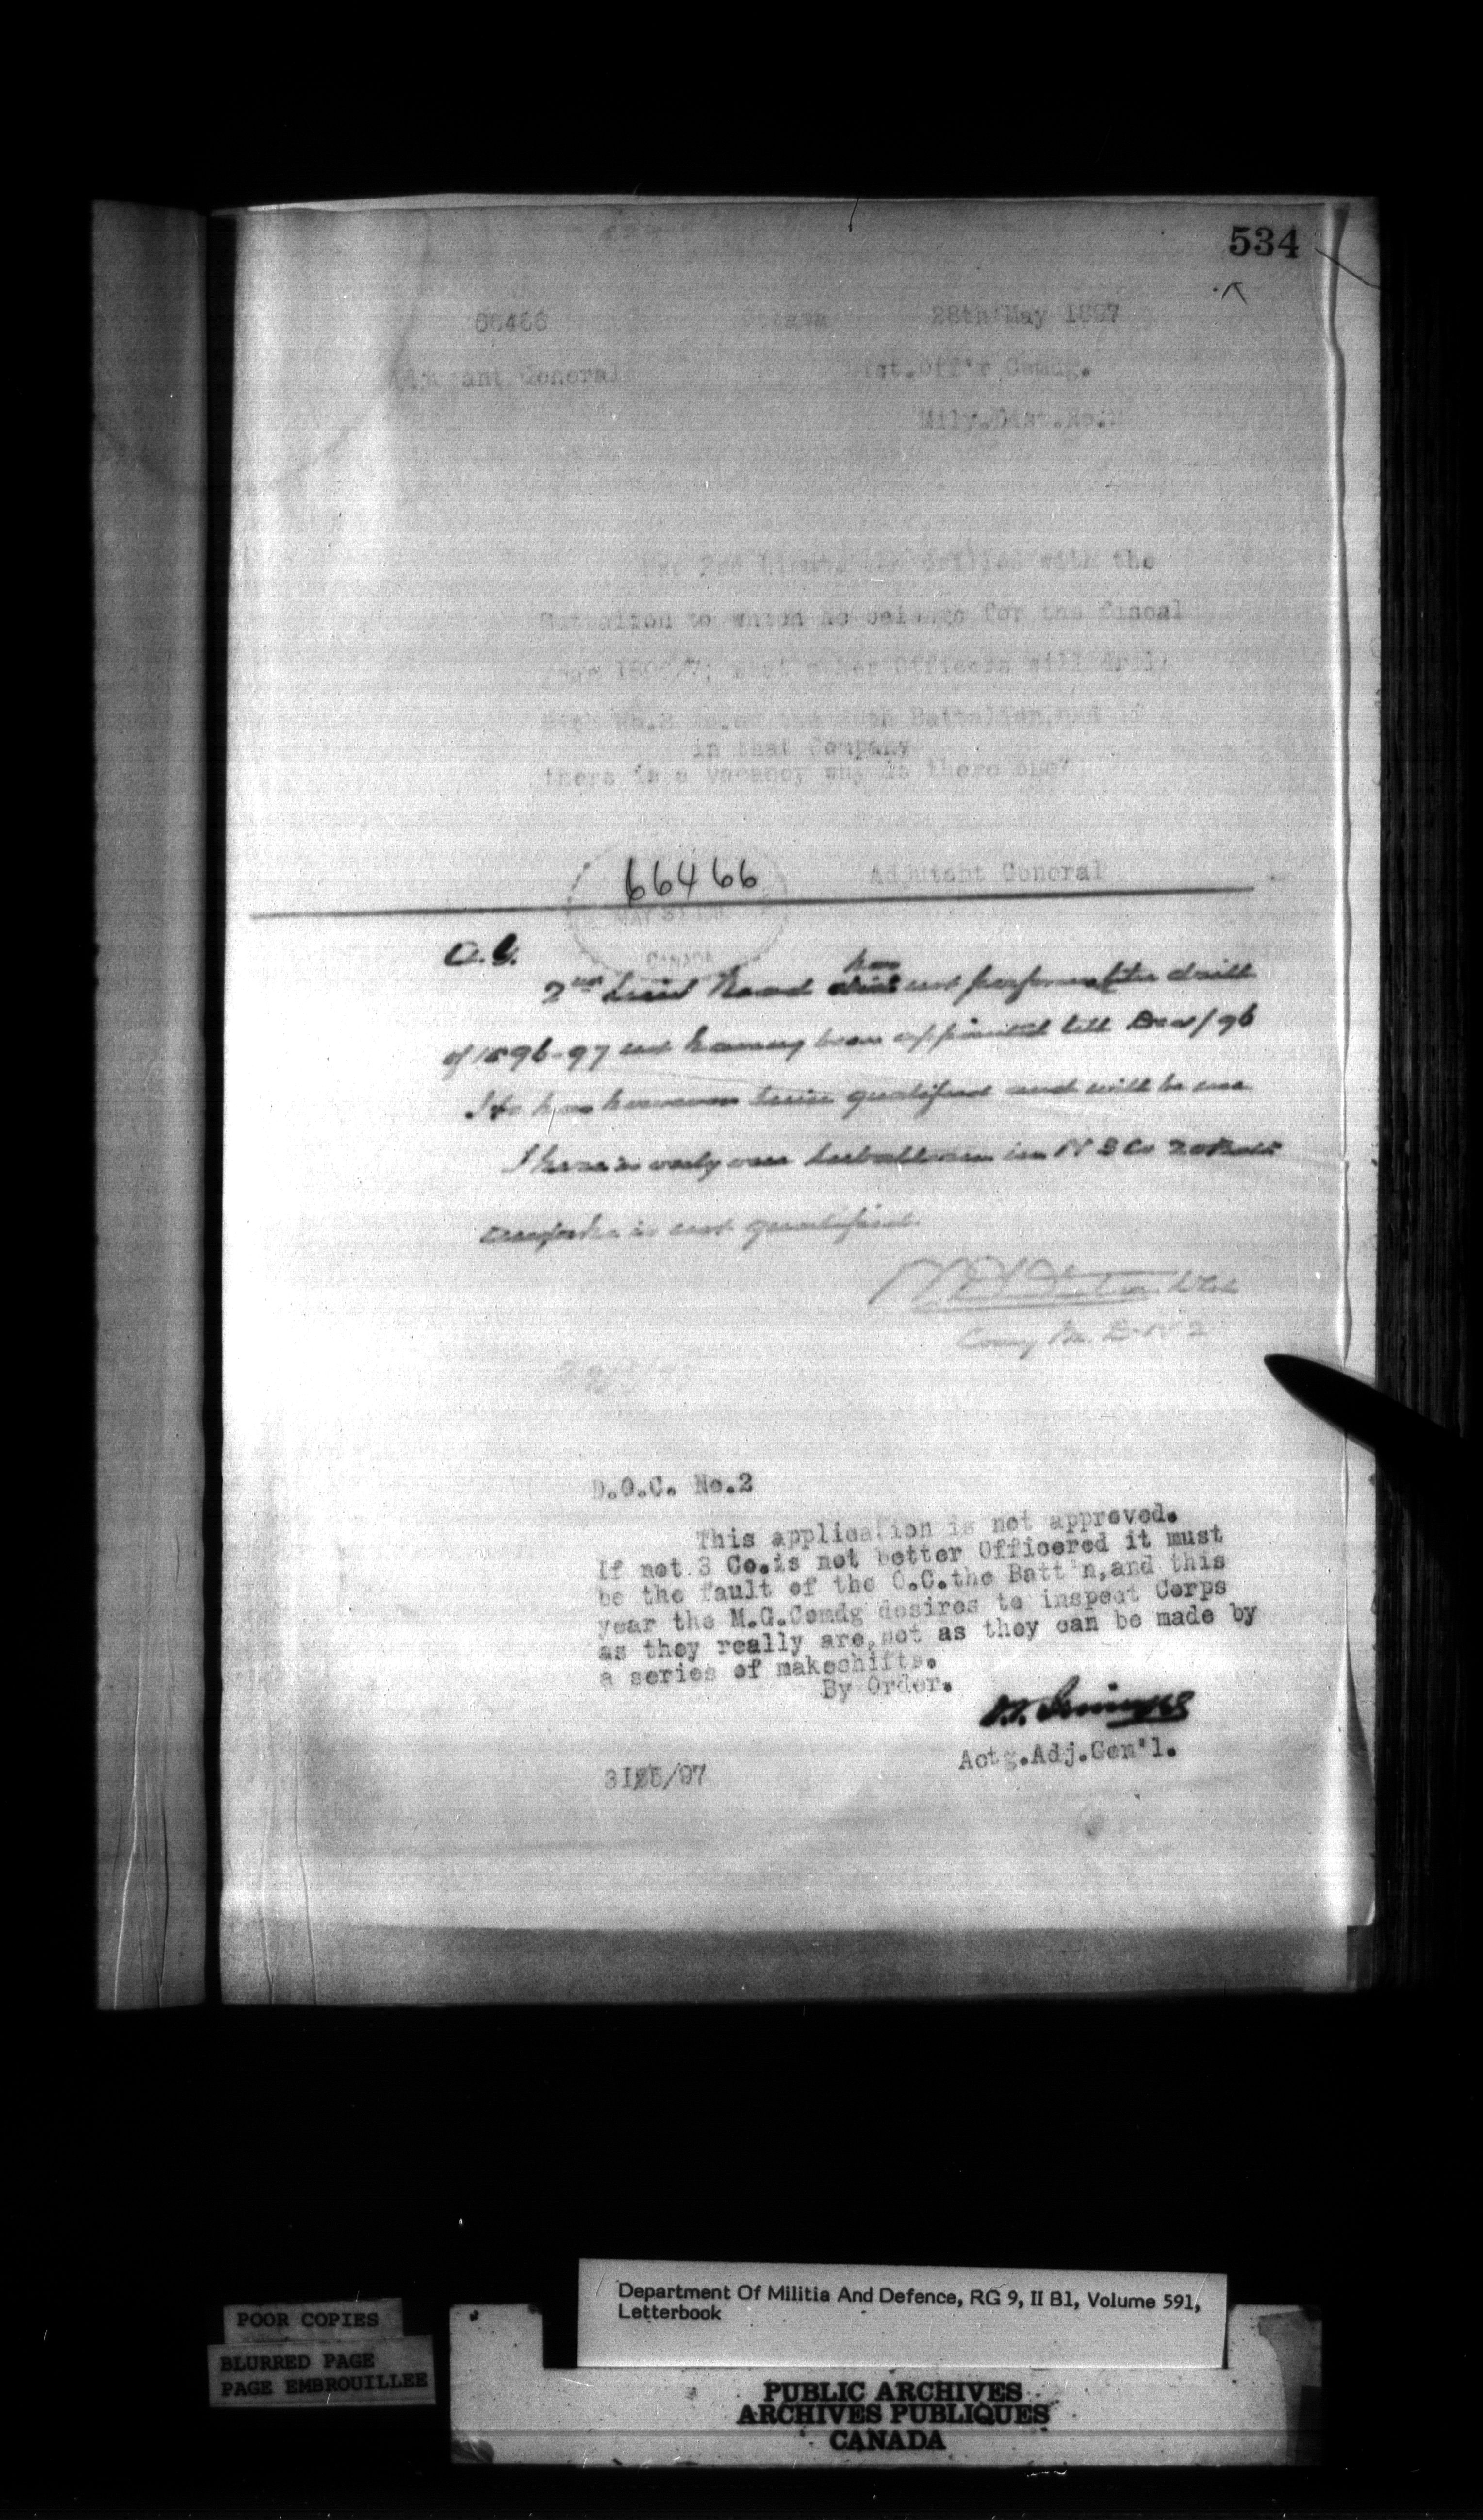 534
66466 Ottawa 28th May 1897
Adjutant General Dist.Off'r Comdg.
Mily.Dist.No.2
Has 2nd Lieut. drilled with the
Battalion to which he belongs for the fiscal
year 1896/7; what other Officers will drill
with No.3 Co.of the 20th Battalion,and if
in that Company
there is a vacancy why is there one?
66466
Adjutant General
MAY 31
CANADA
A.G.
has
2nd Lieut did not perform the drill
of 1896-97 not having been appointed till /96
He has however qualified and will be
There is only one subaltern in No 3 Co 20 Batt
and he is not qualified.
Comg M. D. No 2
D.O.C. No.2
This application is not approved.
If not 3 Co.is not better Officered it must
be the fault of the O.C.the Batt'n,and this
year the M.G.Comdg desires to inspect Corps
as they really are,not as they can be made by
a series of makeshifts.
By Order.
Actg.Adj.Gen'l.
31/5/97
Department Of Militia And Defence, RG 9, II B1, Volume 591,
Letterbook
POOR COPIES
BLURRED PAGE
PAGE EMBROUILLEE
PUBLIC ARCHIVES
ARCHIVES PUBLIQUES
CANADA